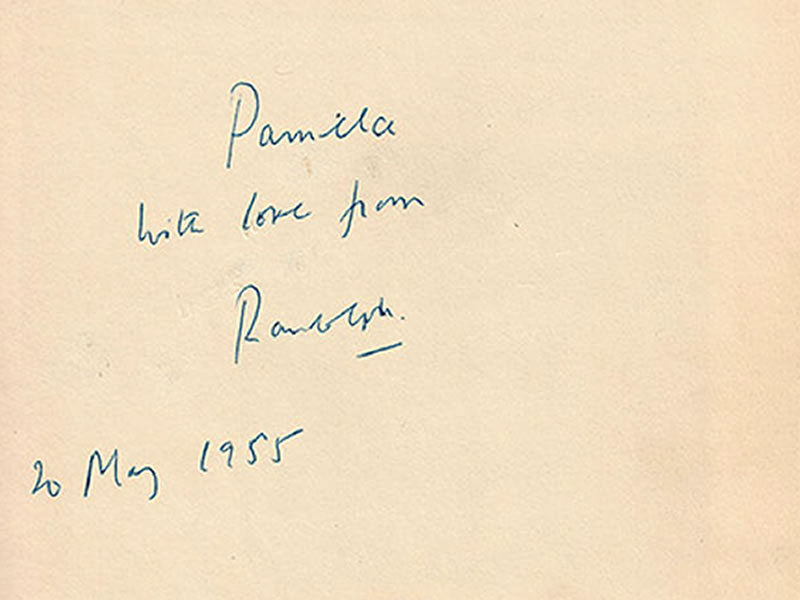 Pamela
with love from
Randolph.
20 May 1955